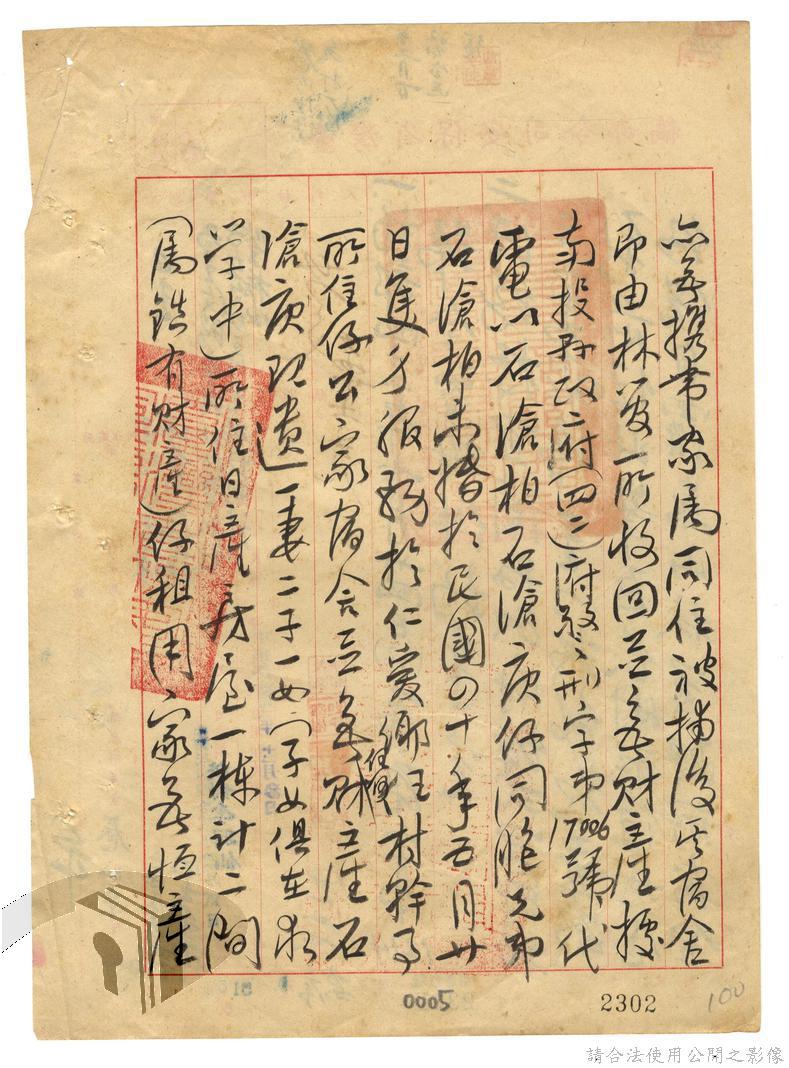 亦無携帶家属同住被捕後其宿舍
即由林管所收回並無財產據
南投縣政府(四二)府警刑字第17006號代
電以石滄柏石滄庚係同胞兄弟
石滄柏未婚於民國四十年五月廿
日隻身服務於仁愛鄉任職村幹事
所住係公家宿舍並無財產石
滄庚現遺一妻二子一女(子女俱在求
学中)所住日產房屋一棟計二間
(属鎮有財產)係租用家無恒產
5000
2302
100
請合法使用公開之影像